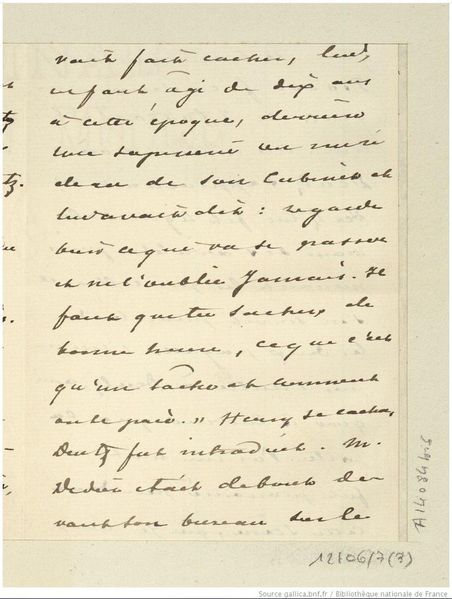 vait fait cacher, lui,
enfant âgé de dix ans
à cette époque, derrière
une tapisserie ou mise
de son Cabinet et
lui avait dit : regarde
bien ce que va se passer
et ne l'oublie Jamais. Il
faut que tu saches de
bonne heure, ce que c'est
qu'un lâche et comment
on le paie. » Henry se cacha,
Deutz fut introduit. M.
Didier était debout de-
vant son bureau sur le
A14084915
12106/7(3)
Source gallica.bnf.fr / Bibliothèque nationale de France